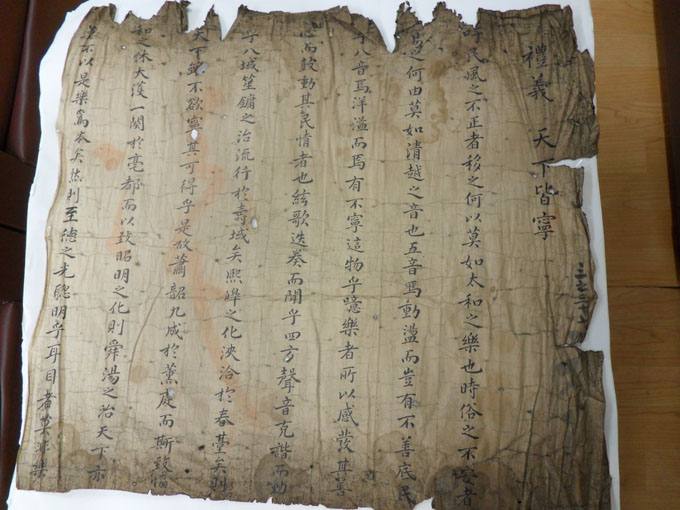 禮義 天下皆寧
三之三
吁民風之不正者移之何以莫如太和之樂也時俗之不寧者
易之何由莫如清越之音也五音焉動盪而豈有不善底民
八音焉洋溢而焉有不寧這物乎噫樂者所以感發其善
心而鼓動其民情者也絃歌迭奏而闢乎四方聲音克諧而
乎八域笙鏞之治流行於壽域矣熙皡之化浹洽於春臺矣則
天下雖不欲寧其可得乎是故蕭韶九成於薰殿而斯致
和之休大濩一闋於亳都而以致昭明之化則舜湯之治天下亦
不以是樂爲本矣然則至德之光聰明乎耳目者莫非樂